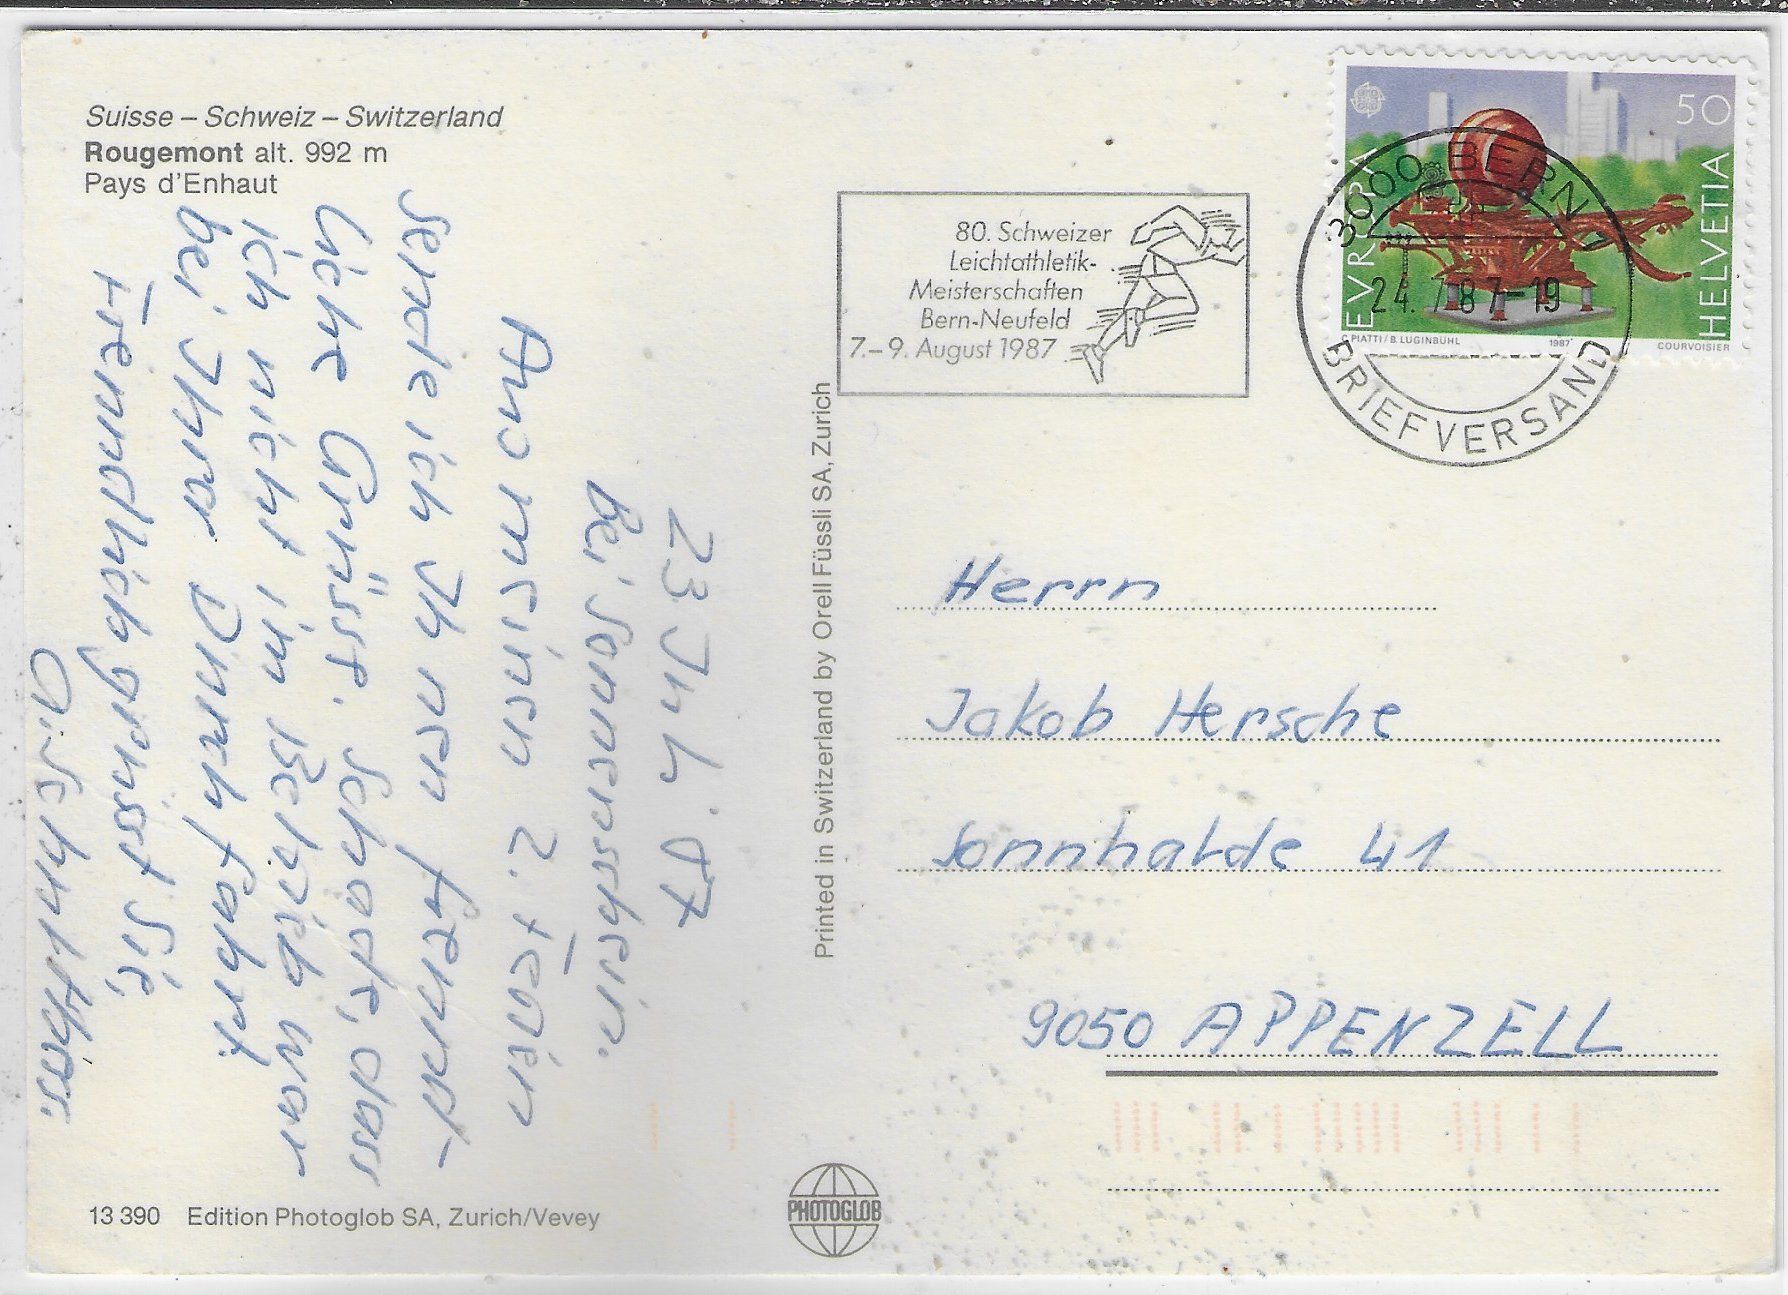 Suisse – Schweiz – Switzerland
Rougemont alt. 992 m
Pays d'Enhaut
23 Juli 87
Bei Sonnenschein.
Aus meinen 2. Ferien
sende ich Ihnen freund-
liche Grüsse. Schade, dass
ich nicht im Betrieb war
bei Ihrer Durchfahrt.
Freundlich grüsst Sie,
13 390 Edition Photoglob SA, Zurich/Vevey
PHOTOGLOB
Printed in Switzerland by Orell Füssli SA, Zurich
80. Schweizer
Leichtathletik-
Meisterschaften
Bern-Neufeld
7.–9. August 1987
3000 BERN 1
24. 7. 87–19
BRIEFVERSAND
50
EVROPA
HELVETIA
C. PIATTI / B. LUGINBÜHL 1987 COURVOISIER
Herrn
Jakob Hersche
Sonnhalde 41
9050 APPENZELL